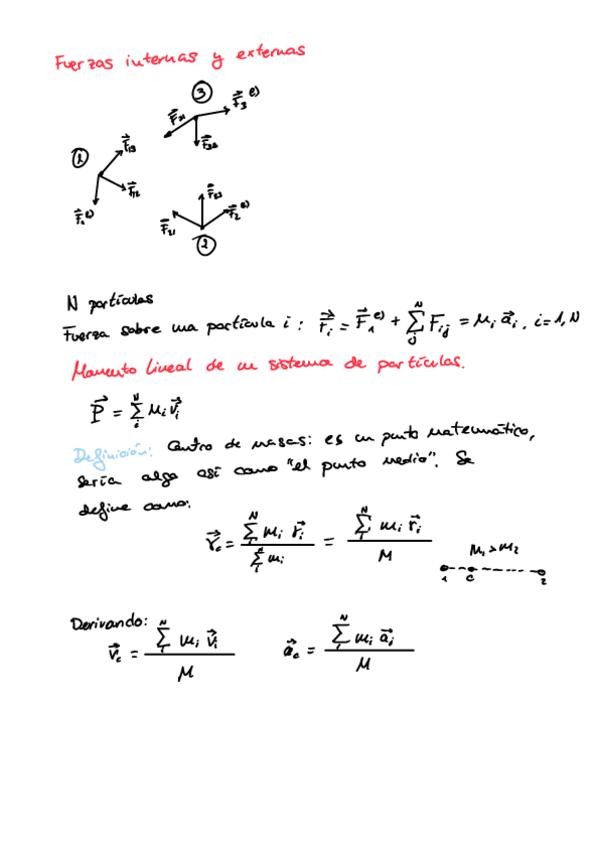 Fuerzas internas y externas
③
F⃗₃ᵉ⁾
F⃗₃₁
F⃗₃₂
①
F⃗₁₃
F⃗₁₂
F⃗₁ᵉ⁾
F⃗₂₃
F⃗₂ᵉ⁾
F⃗₂₁
②
N partículas
Fuerza sobre una partícula i : F⃗ᵢ = F⃗₁ᵉ⁾ + Σⱼᴺ Fᵢⱼ = mᵢ a⃗ᵢ , i = 1, N
Momento lineal de un sistema de partículas.
P⃗ = Σᵢᴺ mᵢ v⃗ᵢ
Definición: Centro de masas: es un punto matemático,
sería algo así como "el punto medio". Se
define como:
r⃗c = Σᵢᴺ mᵢ r⃗ᵢ / Σᵢᴺ mᵢ = Σᵢᴺ mᵢ r⃗ᵢ / M
M₁ > M₂
1 C 2
Derivando:
v⃗c = Σᵢᴺ mᵢ v⃗ᵢ / M a⃗c = Σᵢᴺ mᵢ a⃗ᵢ / M